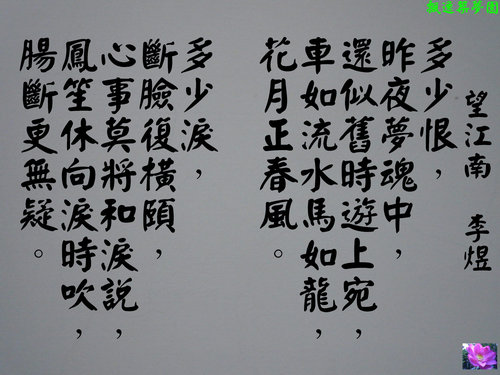 望江南 李煜
多少恨，
昨夜夢魂中，
還似舊時遊上宛，
車如流水馬如龍，
花月正春風。
多少淚，
斷臉復橫頤，
心事莫將和淚說，
鳳笙休向淚時吹，
腸斷更無疑。